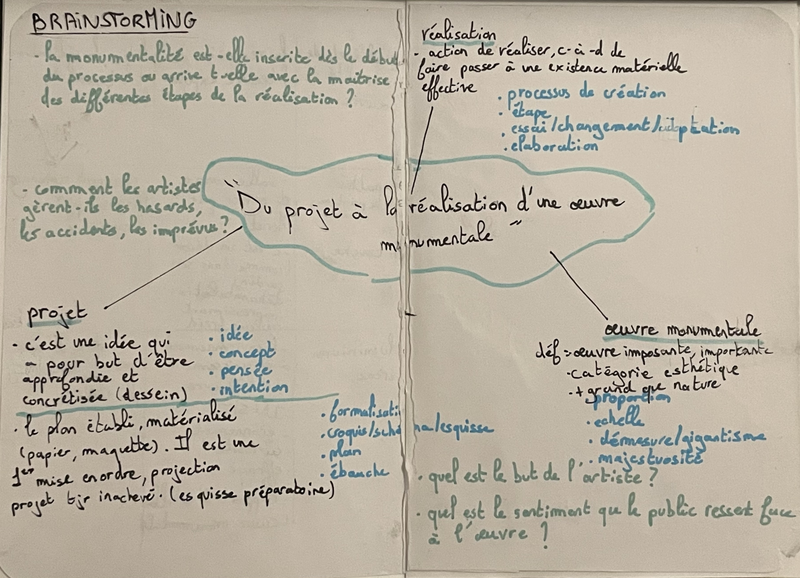 BRAINSTORMING
- la monumentalité est-elle inscrite dès le début
du processus ou arrive t-elle avec la maîtrise
des différentes étapes de la réalisation ?
réalisation
- action de réaliser, c-à-d de
faire passer à une existence matérielle
effective
• processus de création
• étape
• essai/changement/adaptation
• elaboration
- comment les artistes
gèrent-ils les hasards,
les accidents, les imprévus ?
"Du projet à la réalisation d'une œuvre
monumentale"
projet
- c'est une idée qui
a pour but d'être
approfondie et
concrétisée (dessein)
• idée
• concept
• pensée
• intention
• le plan établi, matérialisé
(papier, maquette). Il est une
1er mise en ordre, projection
projet tjr inachevé. (esquisse préparatoire)
• formalisati
• croquis/schéma/esquisse
• plan
• ébauche
œuvre monumentale
déf := œuvre imposante, importante
- catégorie esthétique
- + grand que nature
proportion
• echelle
• démesure/gigantisme
• majestuosité
• quel est le but de l'artiste ?
• quel est le sentiment que le public ressent face
à l'œuvre ?